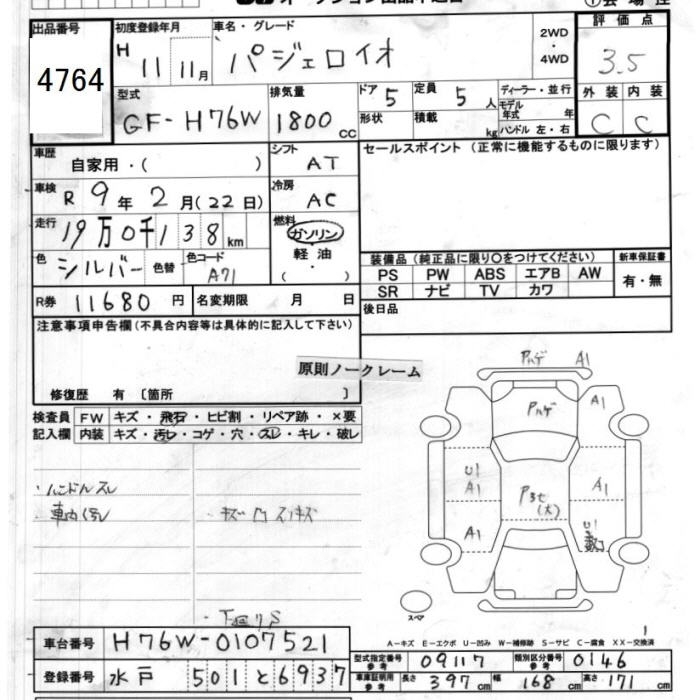 出品番号
4764
初度登録年月
H 11 11月
車名・グレード
パジェロイオ
2WD
・
4WD
評価点
3.5
外装 内装
C C
型式
GF-H76W
排気量
1800cc
ドア 5
定員 5人
形状
積載 kg
ディーラー・並行
モデル年式 年
ハンドル 左・右
車歴
自家用・( )
シフト AT
車検
R 9年 2月(22日)
冷房 AC
走行
19万0千138km
燃料
ガソリン
軽油
( )
色 シルバー 色替
色コード A71
R券 11680円
名変期限 月 日
セールスポイント(正常に機能するものに限ります)
装備品(純正品に限り○をつけてください)
新車保証書
PS PW ABS エアB AW
有・無
SR ナビ TV カワ
後日品
注意事項申告欄(不具合内容等は具体的に記入して下さい)
原則ノークレーム
修復歴 有〔箇所 〕
検査員 FW キズ・飛石・ヒビ割・リペア跡・×要
記入欄 内装 キズ・汚レ・コゲ・穴・スレ・キレ・破レ
・ハンドルスレ
・車内汚レ
・キズ凹スリキズ
・下回りS
A1
A1
A1
U1
A1
A1
A1
U1
スペア
A-キズ E-エクボ U-凹み W-補修跡 S-サビ C-腐食 XX-交換済
車台番号 H76W-0107521
登録番号 水戸 501 と 6937
型式指定番号 参考 09117
類別区分番号 参考 0146
車庫証明用 参考 長さ 397cm 幅 168cm 高さ 171cm